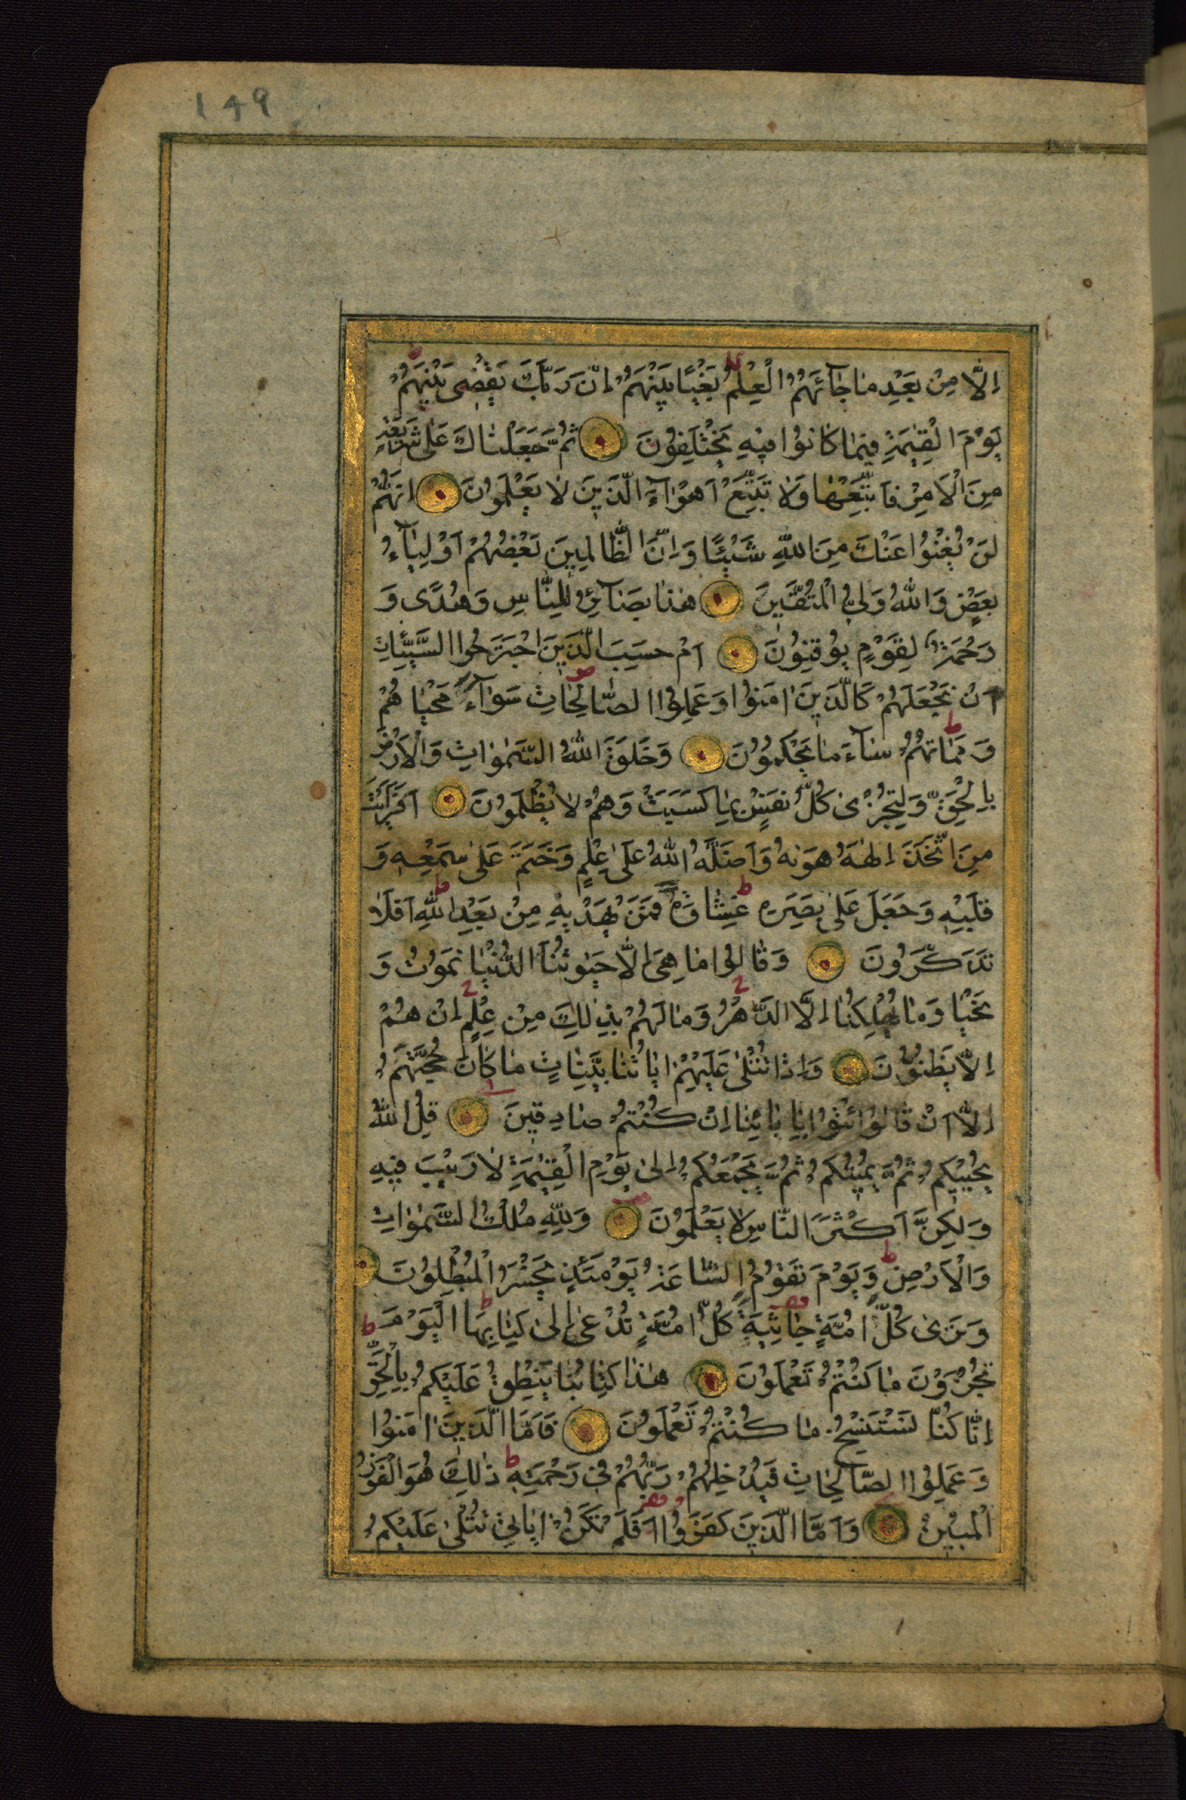 149
اِلَّا مِنْ بَعْدِ مَا جَآئَهُمُ الْعِلْمُ بَغْيًا بَيْنَهُمْ اِنَّ رَبَّكَ يَقْضِى بَيْنَهُمْ
يَوْمَ الْقِيٰمَةِ فِيمَا كَانُوا فِيهِ يَخْتَلِفُونَ ثُمَّ جَعَلْنَاكَ عَلٰى شَرِيعَةٍ
مِنَ الْاَمْرِ فَاتَّبِعْهَا وَلَا تَتَّبِعْ اَهْوَآءَ الَّذِينَ لَا يَعْلَمُونَ اِنَّهُمْ
لَنْ يُغْنُوا عَنْكَ مِنَ اللّٰهِ شَيْئًا وَاِنَّ الظَّالِمِينَ بَعْضُهُمْ اَوْلِيَآءُ
بَعْضٍ وَاللّٰهُ وَلِىُّ الْمُتَّقِينَ هٰذَا بَصَآئِرُ لِلنَّاسِ وَهُدًى وَ
رَحْمَةٌ لِقَوْمٍ يُوقِنُونَ اَمْ حَسِبَ الَّذِينَ اجْتَرَحُوا السَّيِّئَاتِ
اَنْ نَجْعَلَهُمْ كَالَّذِينَ اٰمَنُوا وَعَمِلُوا الصَّالِحَاتِ سَوَآءً مَحْيَاهُمْ
وَمَمَاتُهُمْ سَآءَ مَا يَحْكُمُونَ وَخَلَقَ اللّٰهُ السَّمٰوَاتِ وَالْاَرْضَ
بِالْحَقِّ وَلِتُجْزٰى كُلُّ نَفْسٍ بِمَا كَسَبَتْ وَهُمْ لَا يُظْلَمُونَ اَفَرَاَيْتَ
مَنِ اتَّخَذَ اِلٰهَهُ هَوٰيهُ وَاَضَلَّهُ اللّٰهُ عَلٰى عِلْمٍ وَخَتَمَ عَلٰى سَمْعِهِ وَ
قَلْبِهِ وَجَعَلَ عَلٰى بَصَرِهِ غِشَاوَةً فَمَنْ يَهْدِيهِ مِنْ بَعْدِ اللّٰهِ اَفَلَا
تَذَكَّرُونَ وَقَالُوا مَا هِىَ اِلَّا حَيٰوتُنَا الدُّنْيَا نَمُوتُ وَ
نَحْيَا وَمَا يُهْلِكُنَا اِلَّا الدَّهْرُ وَمَا لَهُمْ بِذٰلِكَ مِنْ عِلْمٍ اِنْ هُمْ
اِلَّا يَظُنُّونَ وَاِذَا تُتْلٰى عَلَيْهِمْ اٰيَاتُنَا بَيِّنَاتٍ مَا كَانَ حُجَّتَهُمْ
اِلَّا اَنْ قَالُوا ائْتُوا بِاٰبَائِنَا اِنْ كُنْتُمْ صَادِقِينَ قُلِ اللّٰهُ
يُحْيِيكُمْ ثُمَّ يُمِيتُكُمْ ثُمَّ يَجْمَعُكُمْ اِلٰى يَوْمِ الْقِيٰمَةِ لَا رَيْبَ فِيهِ
وَلٰكِنَّ اَكْثَرَ النَّاسِ لَا يَعْلَمُونَ وَلِلّٰهِ مُلْكُ السَّمٰوَاتِ
وَالْاَرْضِ وَيَوْمَ تَقُومُ السَّاعَةُ يَوْمَئِذٍ يَخْسَرُ الْمُبْطِلُونَ
وَتَرٰى كُلَّ اُمَّةٍ جَاثِيَةً كُلُّ اُمَّةٍ تُدْعٰى اِلٰى كِتَابِهَا اَلْيَوْمَ
تُجْزَوْنَ مَا كُنْتُمْ تَعْمَلُونَ هٰذَا كِتَابُنَا يَنْطِقُ عَلَيْكُمْ بِالْحَقِّ
اِنَّا كُنَّا نَسْتَنْسِخُ مَا كُنْتُمْ تَعْمَلُونَ فَاَمَّا الَّذِينَ اٰمَنُوا
وَعَمِلُوا الصَّالِحَاتِ فَيُدْخِلُهُمْ رَبُّهُمْ فِى رَحْمَتِهِ ذٰلِكَ هُوَ الْفَوْزُ
الْمُبِينُ وَاَمَّا الَّذِينَ كَفَرُوا اَفَلَمْ تَكُنْ اٰيَاتِى تُتْلٰى عَلَيْكُمْ